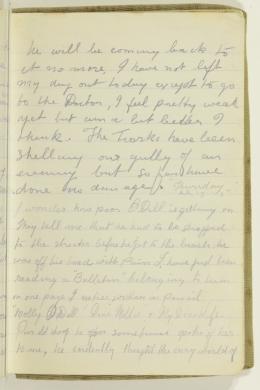 he will be coming back to
it no more, I have not left
my dug out today except to go
to the Doctor, I feel pretty weak
yet but am a bit better I
think. The Turks have been
shelling our gully of an
evening but so far have
done no damage. Thursday
I wonder how poor B Dill is getting on
May tell me that he had to be strapped
to the stretcher before he got to the beach. he
was off his head with Pain I have just been
reading a "Bulletin" belonging to him
on one page I notice written in pencil
"Molly Dill" Dear Nellie
Dill dog he often spoke of her
to me, he evidently thought the very world of